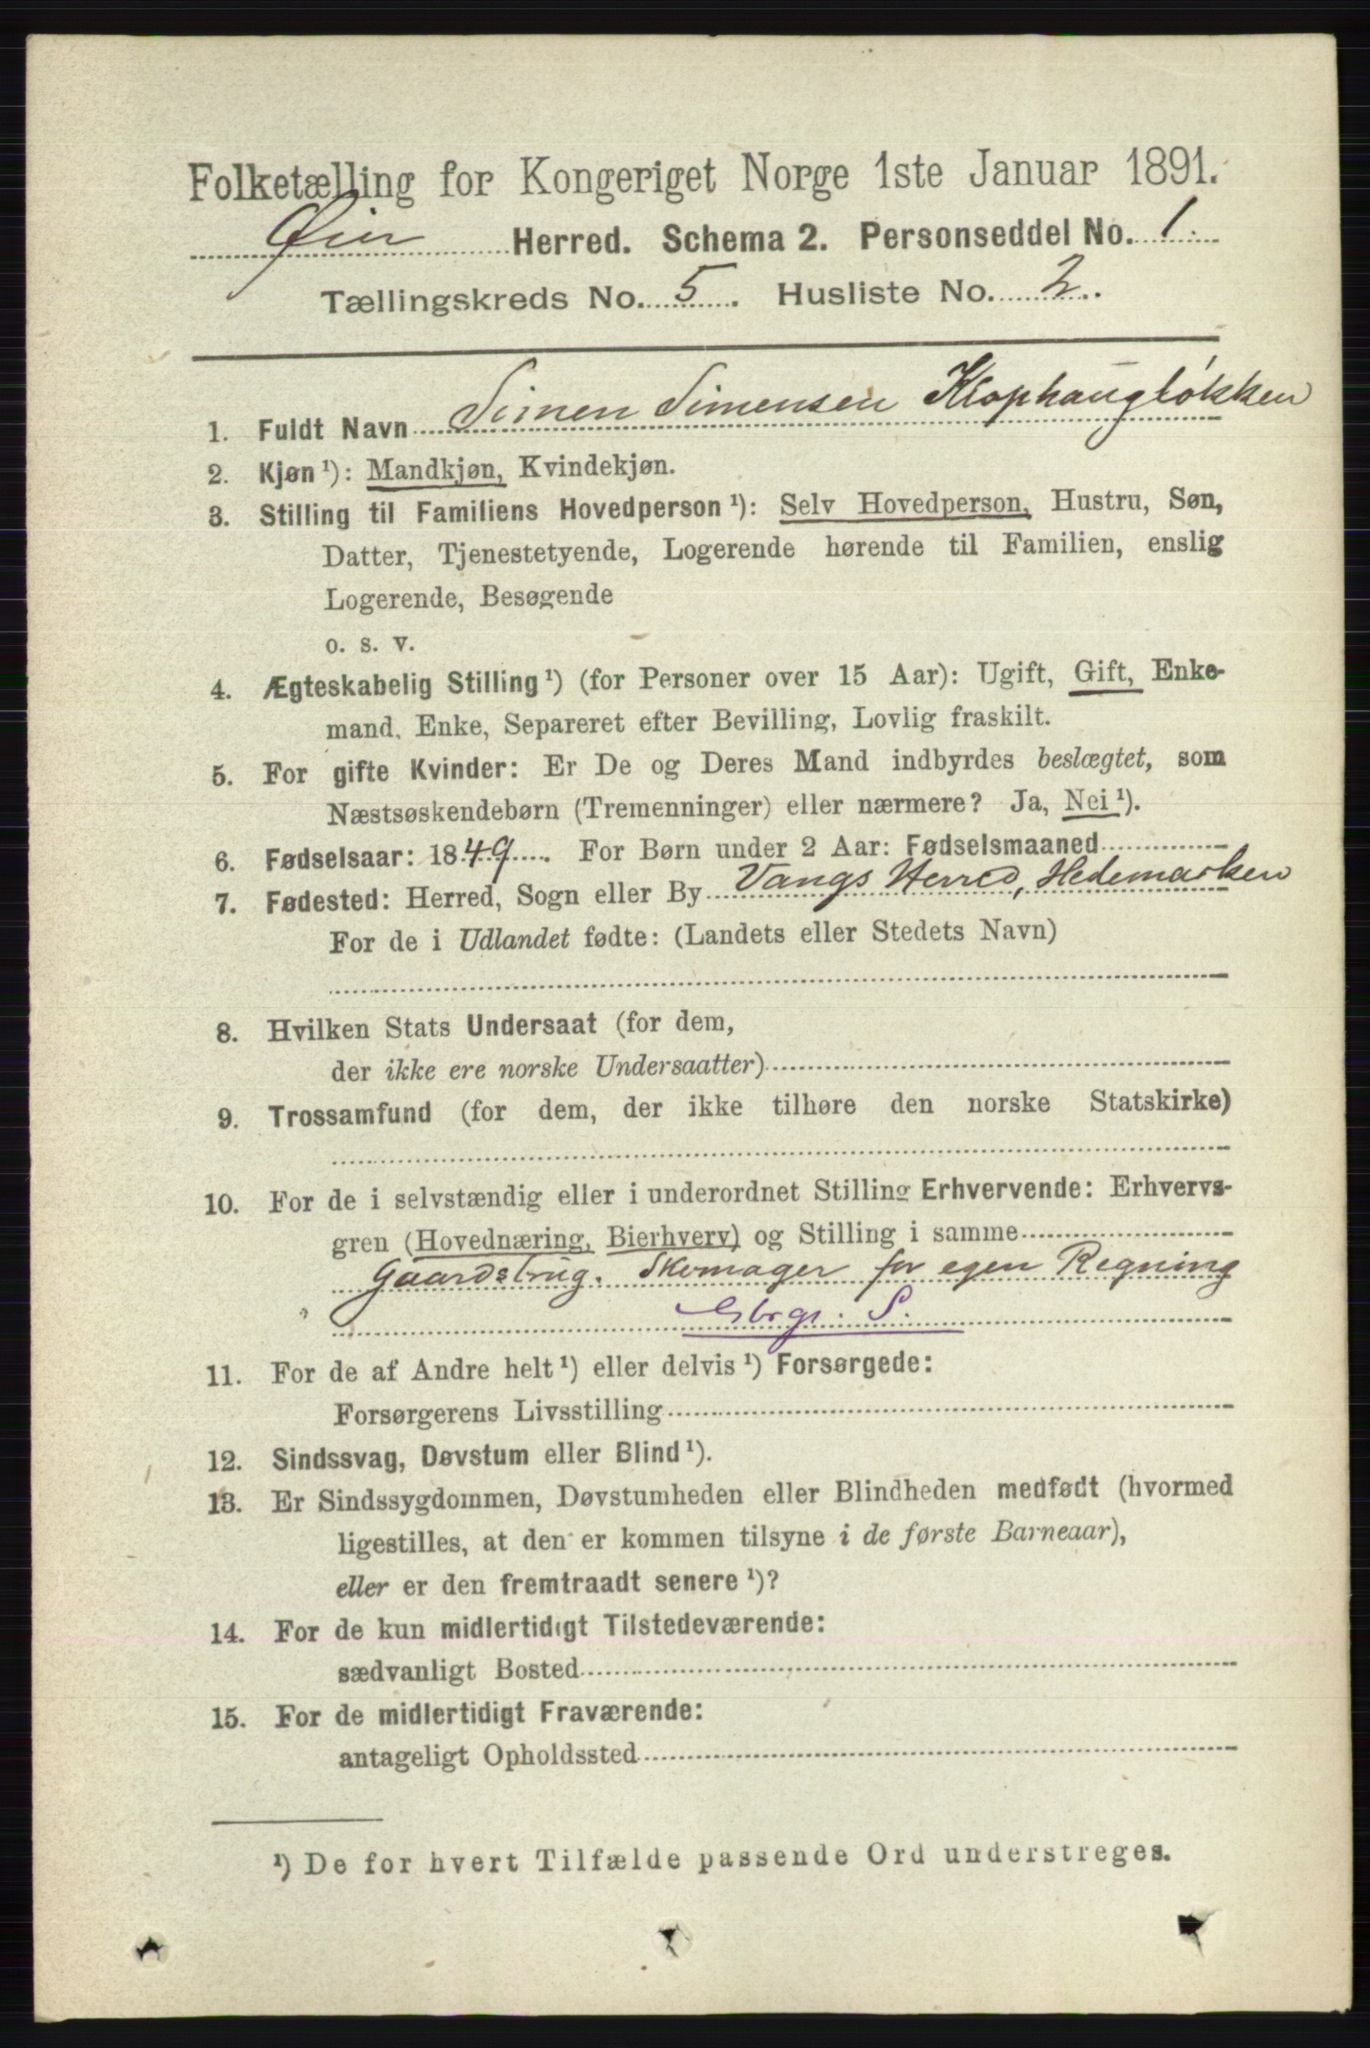 Folketælling for Kongeriget Norge 1ste Januar 1891.
Øier Herred. Schema 2. Personseddel No. 1.
Tællingskreds No. 5. Husliste No. 2.
1. Fuldt Navn Simen Simensen Klophaugløkken
2. Kjøn ¹): Mandkjøn, Kvindekjøn.
3. Stilling til Familiens Hovedperson ¹): Selv Hovedperson, Hustru, Søn,
Datter, Tjenestetyende, Logerende hørende til Familien, enslig
Logerende, Besøgende
o. s. v.
4. Ægteskabelig Stilling ¹) (for Personer over 15 Aar): Ugift, Gift, Enke-
mand, Enke, Separeret efter Bevilling, Lovlig fraskilt.
5. For gifte Kvinder: Er De og Deres Mand indbyrdes beslægtet, som
Næstsøskendebørn (Tremenninger) eller nærmere? Ja, Nei ¹).
6. Fødselsaar: 1849. For Børn under 2 Aar: Fødselsmaaned
7. Fødested: Herred, Sogn eller By Vangs Herred, Hedemarken
For de i Udlandet fødte: (Landets eller Stedets Navn)
8. Hvilken Stats Undersaat (for dem,
der ikke ere norske Undersaatter)
9. Trossamfund (for dem, der ikke tilhøre den norske Statskirke)
10. For de i selvstændig eller i underordnet Stilling Erhvervende: Erhvervs-
gren (Hovednæring, Bierhverv) og Stilling i samme
Gaardsbrug. Skomager for egen Regning
Gbrgr. S.
11. For de af Andre helt ¹) eller delvis ¹) Forsørgede:
Forsørgerens Livsstilling
12. Sindssvag, Døvstum eller Blind ¹).
13. Er Sindssygdommen, Døvstumheden eller Blindheden medfødt (hvormed
ligestilles, at den er kommen tilsyne i de første Barneaar),
eller er den fremtraadt senere ¹)?
14. For de kun midlertidigt Tilstedeværende:
sædvanligt Bosted
15. For de midlertidigt Fraværende:
antageligt Opholdssted
¹) De for hvert Tilfælde passende Ord understreges.